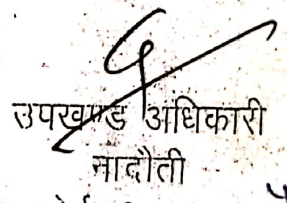 उपखण्ड अधिकारी
नादौती